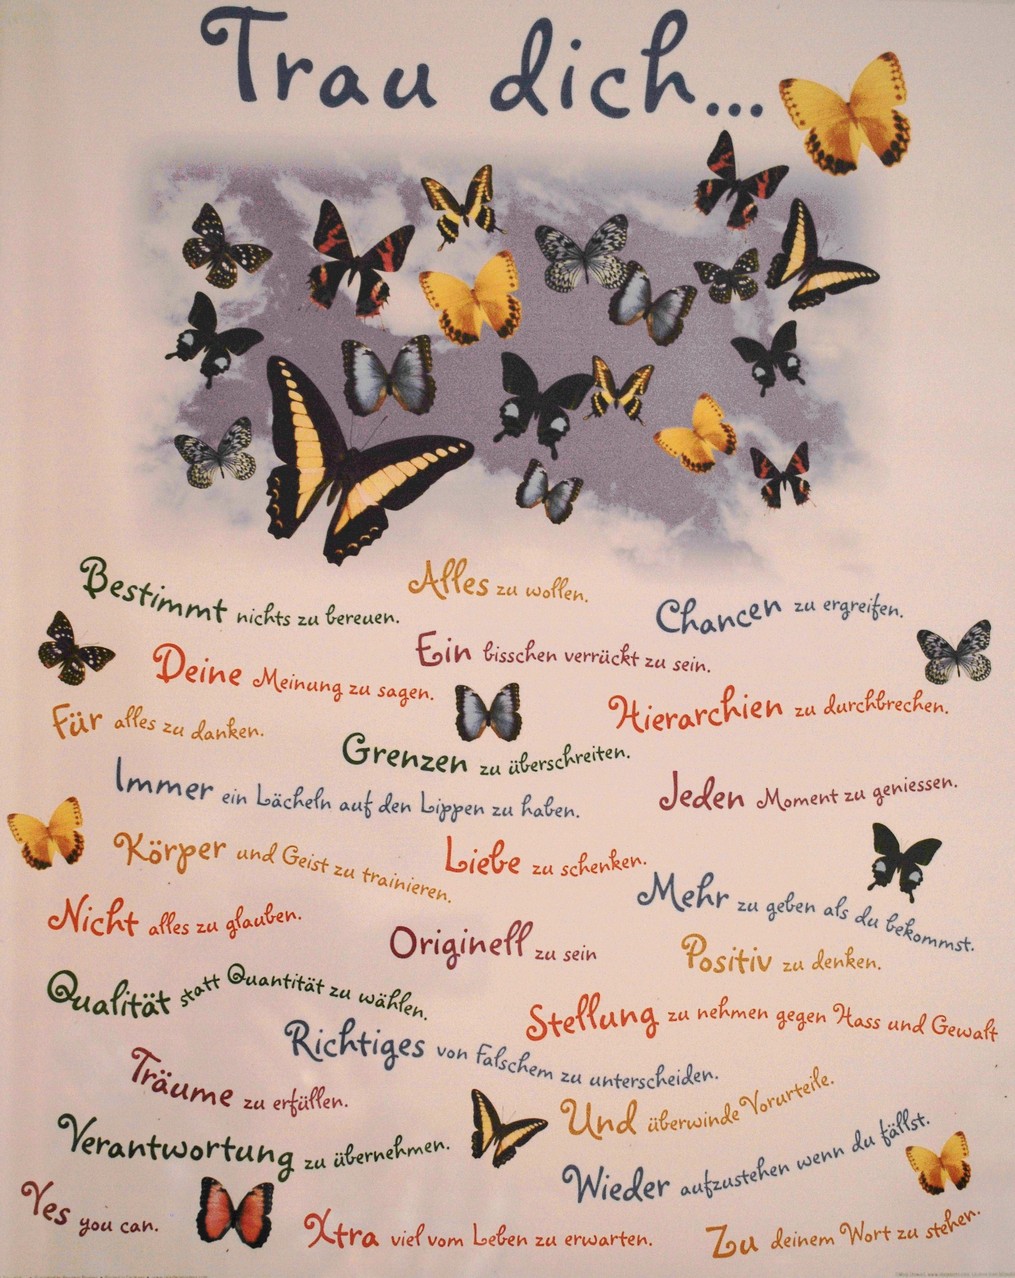 Trau dich...
Alles zu wollen.
Bestimmt nichts zu bereuen.
Chancen zu ergreifen.
Ein bisschen verrückt zu sein.
Deine Meinung zu sagen.
Hierarchien zu durchbrechen.
Für alles zu danken.
Grenzen zu überschreiten.
Immer ein Lächeln auf den Lippen zu haben.
Jeden Moment zu geniessen.
Körper und Geist zu trainieren.
Liebe zu schenken.
Mehr zu geben als du bekommst.
Nicht alles zu glauben.
Originell zu sein
Positiv zu denken.
Qualität statt Quantität zu wählen.
Stellung zu nehmen gegen Hass und Gewalt
Richtiges von Falschem zu unterscheiden.
Träume zu erfüllen.
Und überwinde Vorurteile.
Verantwortung zu übernehmen.
Wieder aufzustehen wenn du fällst.
Yes you can.
Xtra viel vom Leben zu erwarten.
Zu deinem Wort zu stehen.